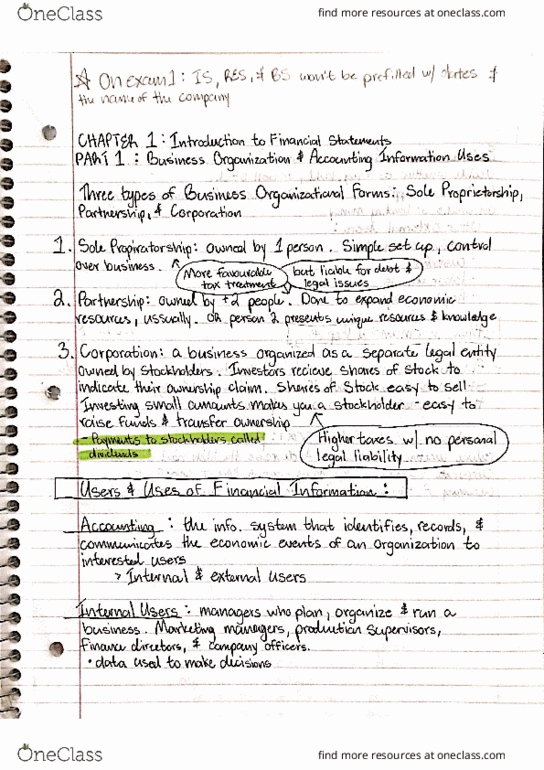 OneClass
find more resources at oneclass.com
☆ On exam 1: IS, RES, & BS won't be prefilled w/ dates &
the name of the company
CHAPTER 1: Introduction to Financial Statements
PART 1: Business Organization & Accounting Information Uses
Three types of Business Organizational Forms: Sole Proprietorship,
Partnership, & Corporation
1. Sole Propiratorship: owned by 1 person. Simple set up, control
over business.
More favourable
tax treatment
but liable for debt &
legal issues
2. Partnership: owned by +2 people. Done to expand economic
resources, ussually. OR person 2 presents unique resources & knowledge
3. Corporation: a business organized as a separate legal entity
owned by stockholders. Investors recieve shares of stock to
indicate their ownership claim. Shares of Stock easy to sell.
Investing small amounts makes you a stockholder - easy to
raise funds & transfer ownership
- Payments to stockholders called
dividends
Higher taxes w/ no personal
legal liability
Users & Uses of Financial Information:
Accounting: the info. system that identifies, records, &
communicates the economic events of an organization to
interested users
> Internal & external users
Internal Users: managers who plan, organize & run a
business. Marketing managers, production supervisors,
Finance directors, & company officers.
• data used to make decisions
OneClass
find more resources at oneclass.com